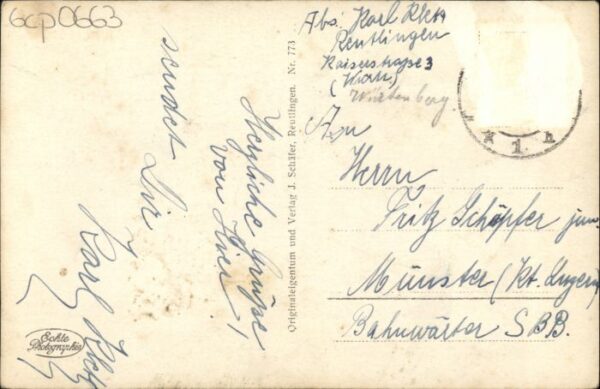 6cp0663
Abs. Karl Klett
Reutlingen
Kaiserstraße 3
(Württ)
Württenberg
* 1 h
An
Herrn
Fritz Schöpfer jun.
Münster (Kt. Luzern)
Bahnwärter SBB.
Originaleigentum und Verlag J. Schäfer, Reutlingen. Nr. 773
Herzliche Grüße
von Hier!
sendet
Dir
Karl Klett
Echte
Photographie